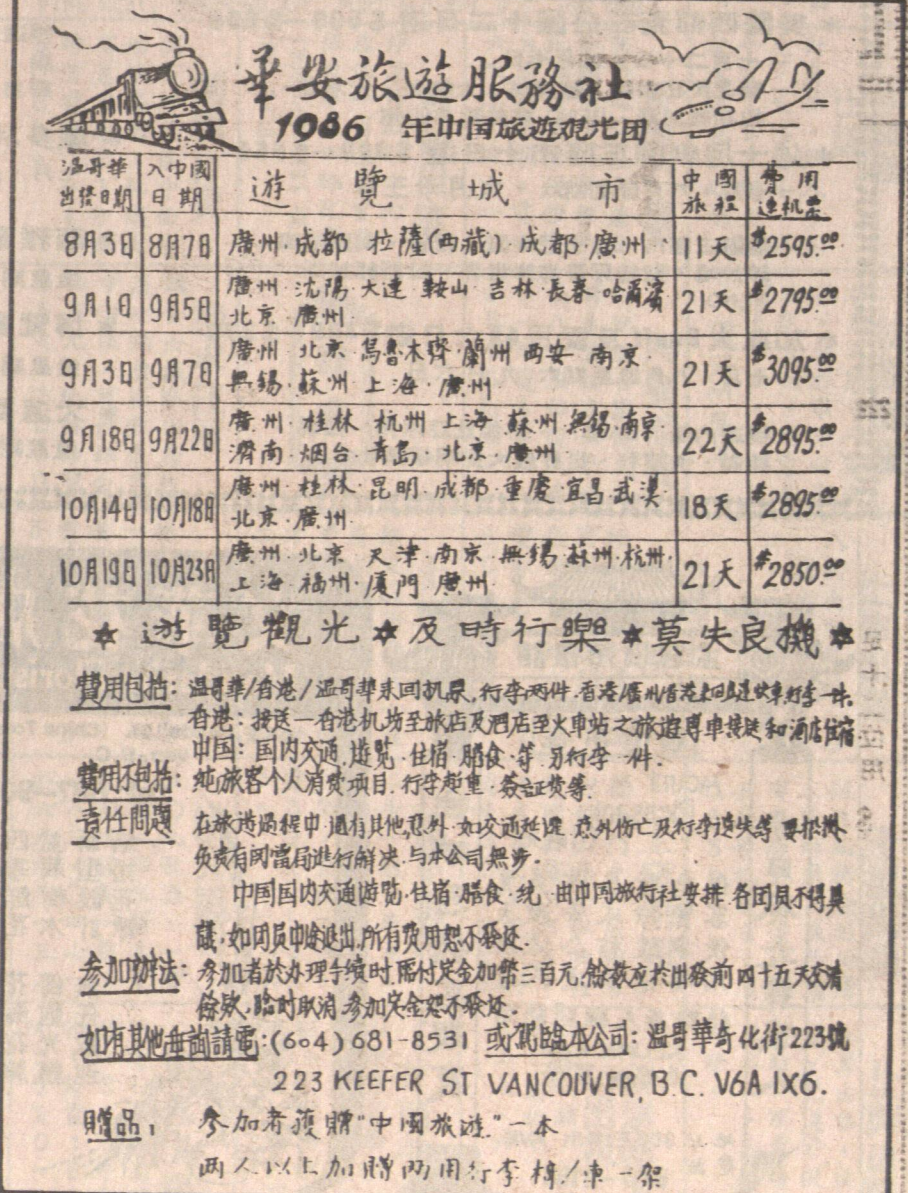 華安旅遊服務社
1986 年中国旅遊观光团
温哥華出發日期 入中國日期 遊覽城市 中國旅程 費用連机票
8月3日 8月7日 廣州·成都 拉薩(西藏)·成都·廣州· 11天 $2595.00
9月1日 9月5日 廣州·沈陽·大連 鞍山·吉林·長春 哈爾濱
北京·廣州· 21天 $2795.00
9月3日 9月7日 廣州 北京·烏魯木齊·蘭州 西安 南京·
無錫·蘇州 上海·廣州· 21天 $3095.00
9月18日 9月22日 廣州·桂林 杭州 上海 蘇州 無錫·南京·
濟南·烟台·青島·北京·廣州 22天 $2895.00
10月14日 10月18日 廣州·桂林·昆明·成都·重慶·宜昌·武漢·
北京·廣州· 18天 $2895.00
10月19日 10月23日 廣州·北京 天津·南京·無錫 蘇州·杭州·
上海·福州·廈門 廣州· 21天 $2850.00
☆ 遊覽觀光 ☆ 及時行樂 ☆ 莫失良機 ☆
費用包括: 温哥華/香港/温哥華来回机票,行李两件·香港/廣州/香港来回直通快車行李一件.
香港: 接送一香港机坊至旅店及酒店至火車站之旅遊專車接送和酒店住宿
中国: 国内交通.遊览·住宿·膳食·等.另行李一件.
費用不包括: 纯旅客个人消费项目.行李超重·簽証费等.
責任問題 在旅遊過程中.遇有其他意外·如交通延遲 意外伤亡及行李遺失等 要根據
负责有関當局進行解決.与本公司無涉.
中国国内交通遊览·住宿·膳食·统一由中国旅行社安排.各团员不得異
議,如团员中途退出,所有费用恕不發还.
参加辦法: 参加者於办理手续时.需付定金加幣三百元,餘数應於出發前四十五天交清
餘欵,臨时取消.参加定金恕不發还.
如有其他垂詢請電:(604) 681-8531 或駕臨本公司: 温哥華奇化街223號
223 KEEFER ST VANCOUVER, B.C. V6A 1X6.
贈品: 參加者獲贈"中國旅遊"一本
两人以上加贈两用行李椅/車一架